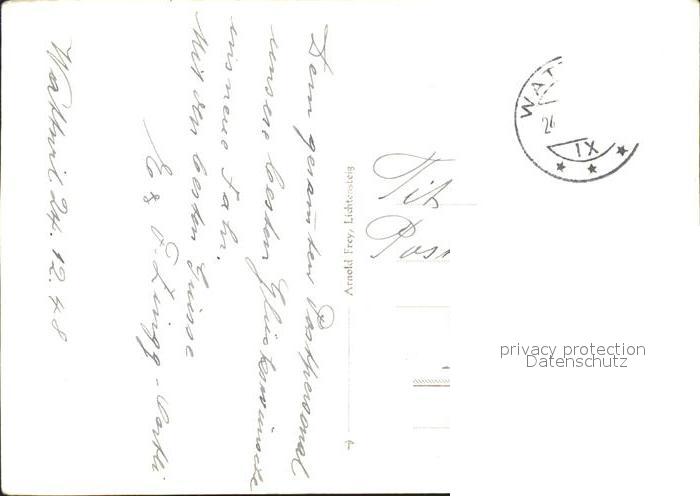 Dem gesamten Postpersonal
unsere besten Glückwünsche
ins neue Jahr.
Mit den besten Grüsse
E & F. Zingg-
Wattwil, 24. 12. 48
Arnold Frey, Lichtensteig
Tit
Pos
WAT
IX
privacy protection
Datenschutz